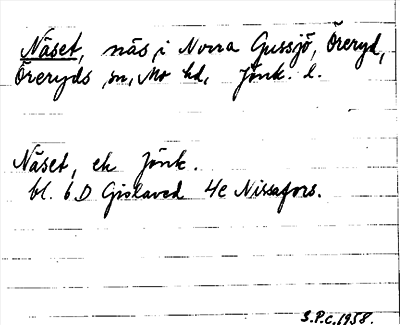 Näset, näs i Norra Gussjö, Öreryd,
Öreryds sn, Mo hd, Jönk. l.
Näset, ek Jönk.
bl. 6 D Gislaved 4e Nissafors.
S.P.C. 1958.